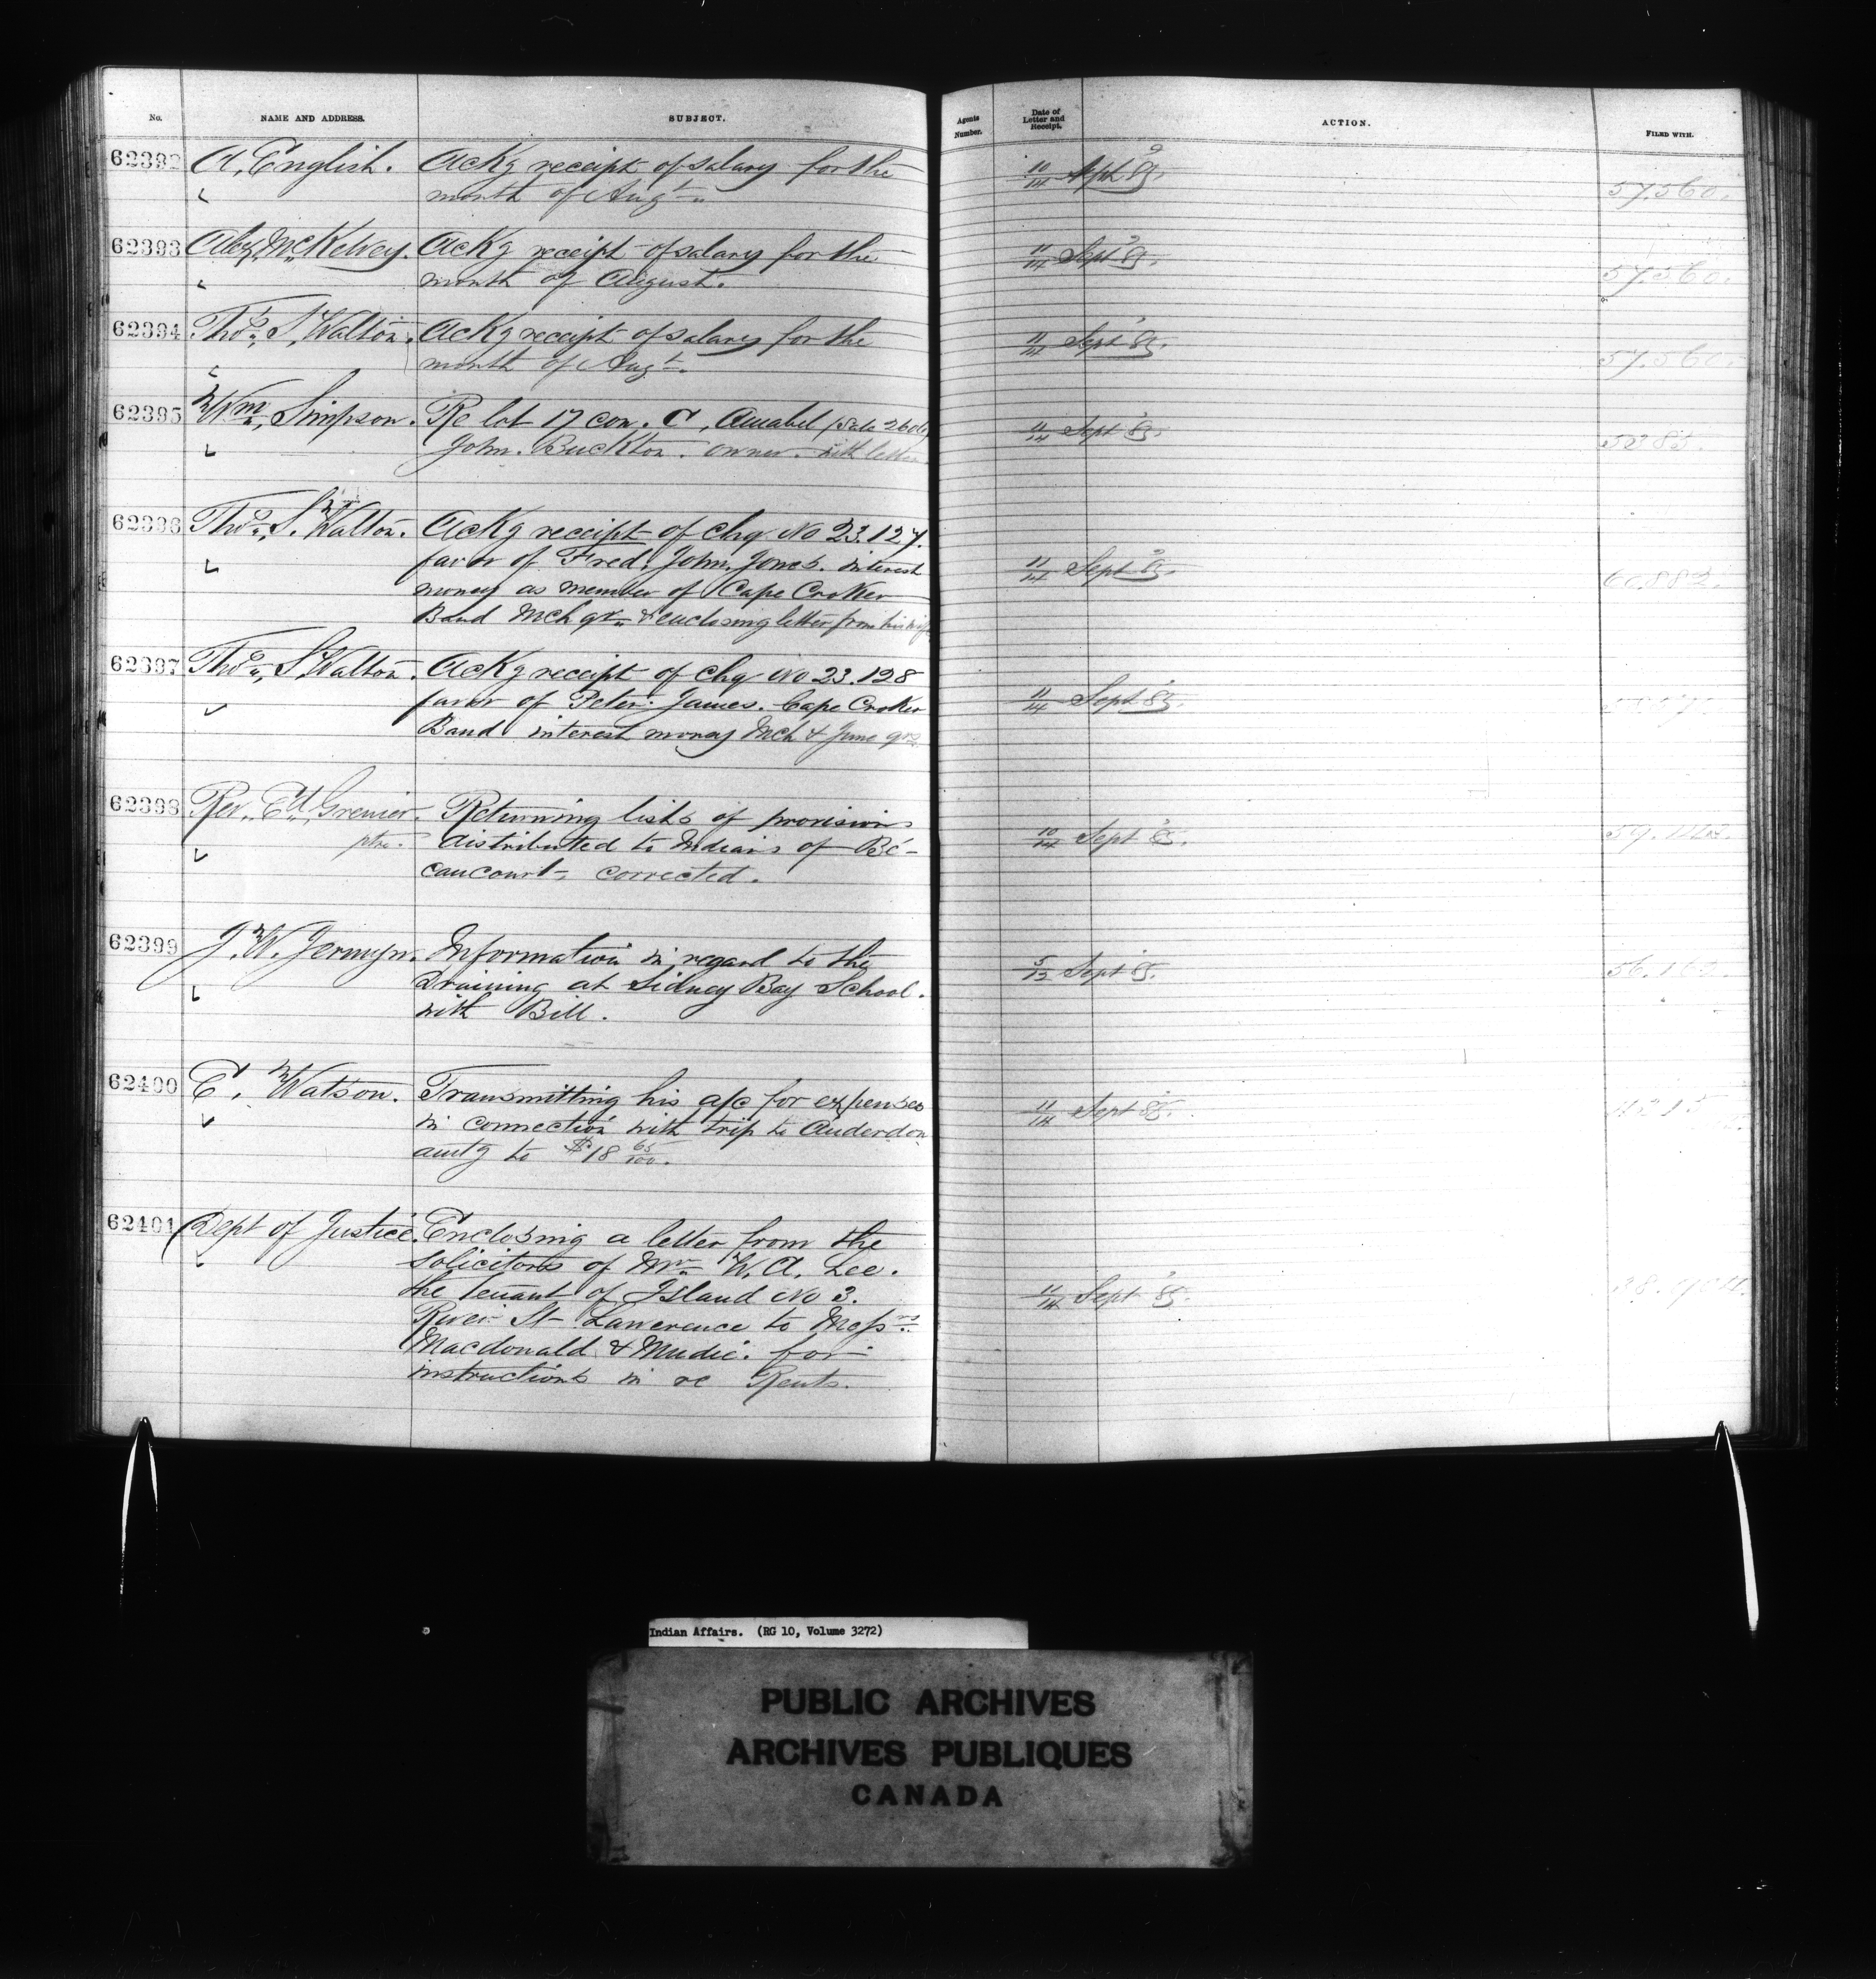 No. NAME AND ADDRESS. SUBJECT. Agents Number. Date of Letter and Receipt. ACTION. FILED WITH.
62392 A. English. Ackg receipt of salary for the 10/14 Sept 85. 57.560.
month of Augt.
62393 Alex. McKelvey. Ackg receipt of salary for the 11/14 Sept 85. 57.560.
month of August.
62394 Thos. S. Walton. Ackg receipt of salary for the 11/14 Sept 85. 57.560.
month of Augt.
62395 Wm. Simpson. Re lot 17 con. C, Amabel 11/14 Sept 85.
John. Buckton. owner. with letter
62396 Thos. S. Walton. Ackg receipt of chq No 23.127.
favor of Fred. John. Jones. interest 11/14 Sept 85. 60.882.
money as member of Cape Croker
Band Mch qr. & enclosing letter from his wife
62397 Thos. S. Walton. Ackg receipt of chq No 23.128
favor of Peter. James. Cape Croker 11/14 Sept 85.
Band interest money Mch & June qrs
62398 Rev. Ed. Grenier. Returning lists of provisions
ptre. distributed to Indians of Bé- 10/14 Sept 85.
caucourt, corrected.
62399 J. W. Jermyn. Information in regard to the
Draining at Sidney Bay School. 5/12 Sept 85.
with Bill.
62400 E. Watson. Transmitting his a/c for expenses
in connection with trip to Anderdon 11/14 Sept 85.
amtg to $18 65/100.
62401 Dept of Justice. Enclosing a letter from the
solicitors of Mr. W. A. Lee.
the tenant of Island No 3. 11/14 Sept 85.
River St Lawerence to Messrs.
Macdonald & Mudie. for
instructions in re Rents.
Indian Affairs. (RG 10, Volume 3272)
PUBLIC ARCHIVES
ARCHIVES PUBLIQUES
CANADA